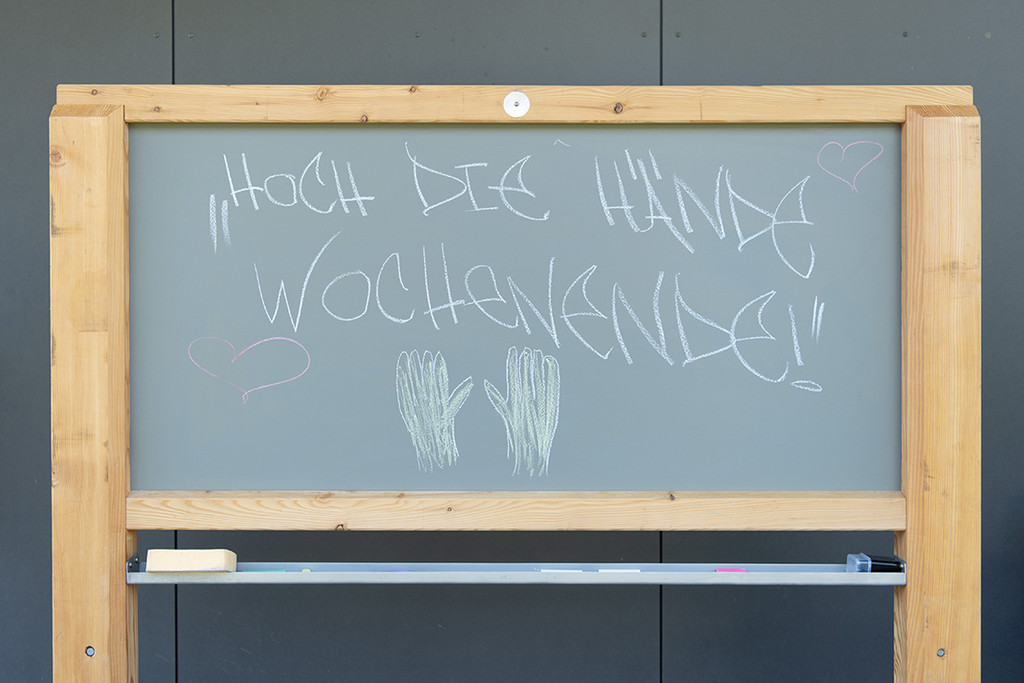 „HOCH DIE HÄNDE
WOCHENENDE!"